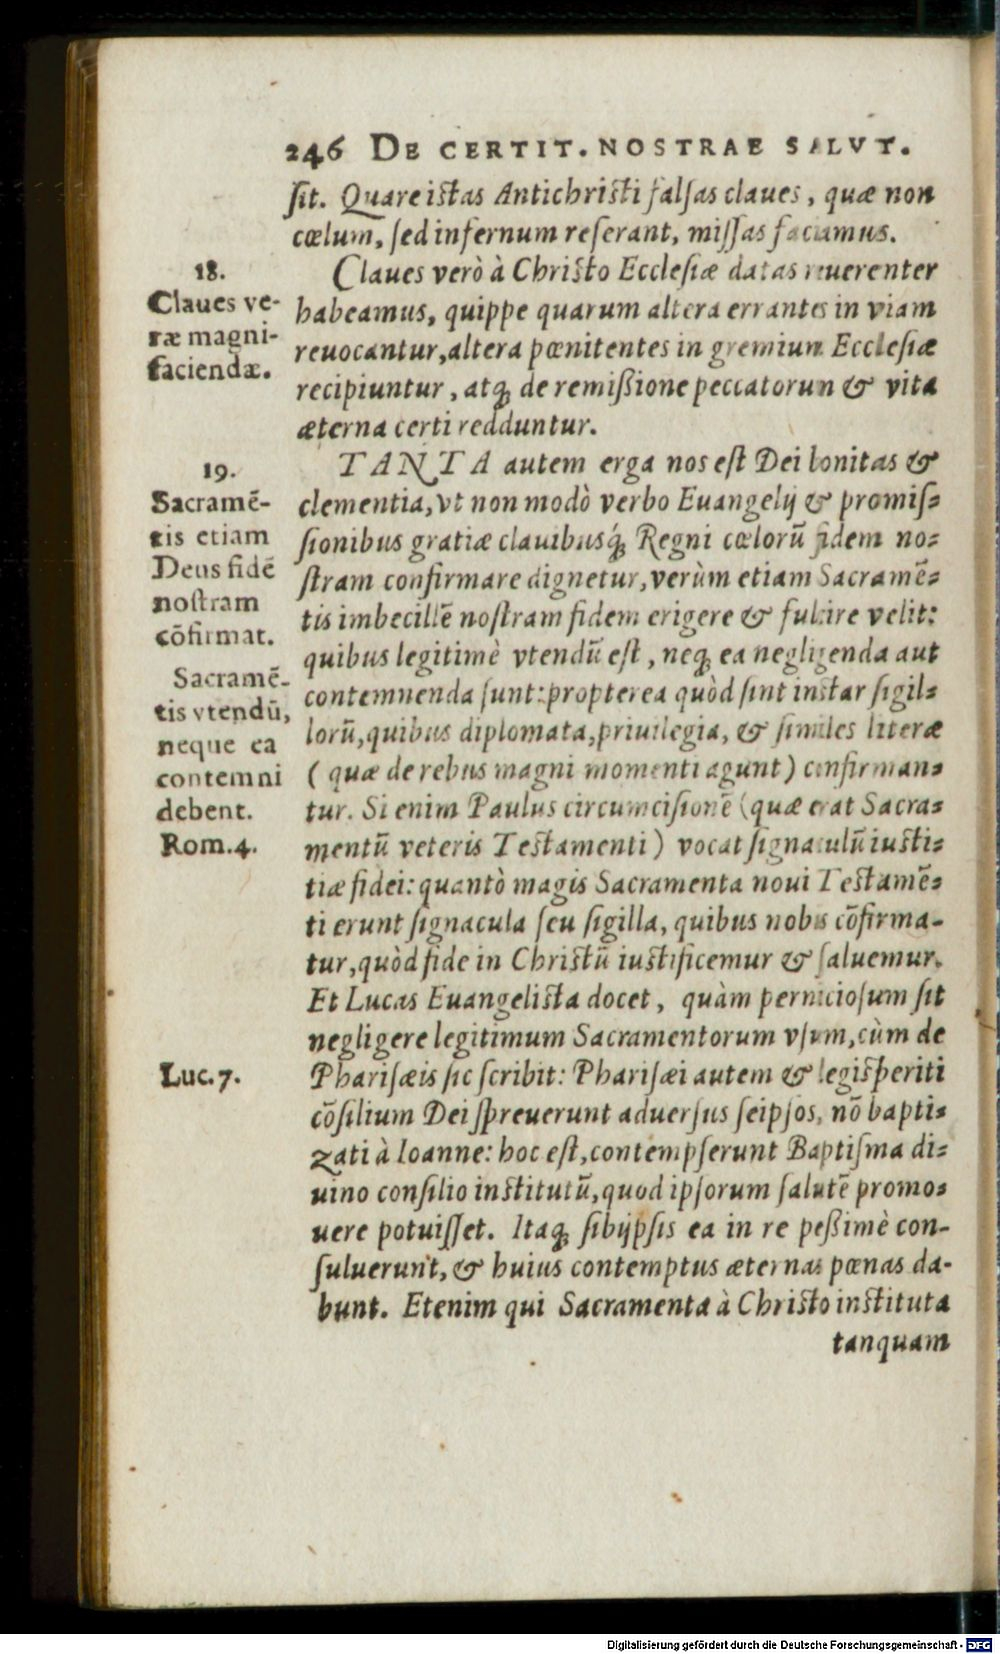 246 DE CERTIT. NOSTRAE SALVT.
sit. Quare istas Antichristi falsas claues, quæ non
cœlum, sed infernum reserant, missas faciamus.
18.
Claues ve-
ræ magni-
faciendæ.
Claues verò à Christo Ecclesiæ datas reuerenter
habeamus, quippe quarum altera errantes in viam
reuocantur, altera pœnitentes in gremium Ecclesiæ
recipiuntur, atq; de remißione peccatorum & vita
æterna certi redduntur.
19.
Sacramē-
tis etiam
Deus fidē
nostram
cōfirmat.
Sacramē-
tis vtendū,
neque ea
contemni
debent.
Rom.4.
TANTA autem erga nos est Dei bonitas &
clementia, vt non modò verbo Euangelij & promis-
sionibus gratiæ clauibusq́; Regni cœlorū fidem no-
stram confirmare dignetur, verùm etiam Sacramē-
tis imbecillē nostram fidem erigere & fulcire velit:
quibus legitimè vtendū est, neq; ea negligenda aut
contemnenda sunt: propterea quòd sint instar sigil-
lorū, quibus diplomata, priuilegia, & similes literæ
(quæ de rebus magni momenti agunt) confirman-
tur. Si enim Paulus circumcisionē (quæ erat Sacra-
mentū veteris Testamenti) vocat signaculū iusti-
tiæ fidei: quantò magis Sacramenta noui Testamē-
ti erunt signacula seu sigilla, quibus nobis cōfirma-
tur, quòd fide in Christū iustificemur & saluemur.
Et Lucas Euangelista docet, quàm perniciosum sit
negligere legitimum Sacramentorum vsum, cùm de
Luc.7.
Pharisæis sic scribit: Pharisæi autem & legisperiti
cōsilium Dei spreuerunt aduersus seipsos, nō bapti-
zati à Ioanne: hoc est, contempserunt Baptisma di-
uino consilio institutū, quod ipsorum salutē promo-
uere potuisset. Itaq; sibijpsis ea in re peßimè con-
suluerunt, & huius contemptus æternas pœnas da-
bunt. Etenim qui Sacramenta à Christo instituta
tanquam
Digitalisierung gefördert durch die Deutsche Forschungsgemeinschaft - DFG